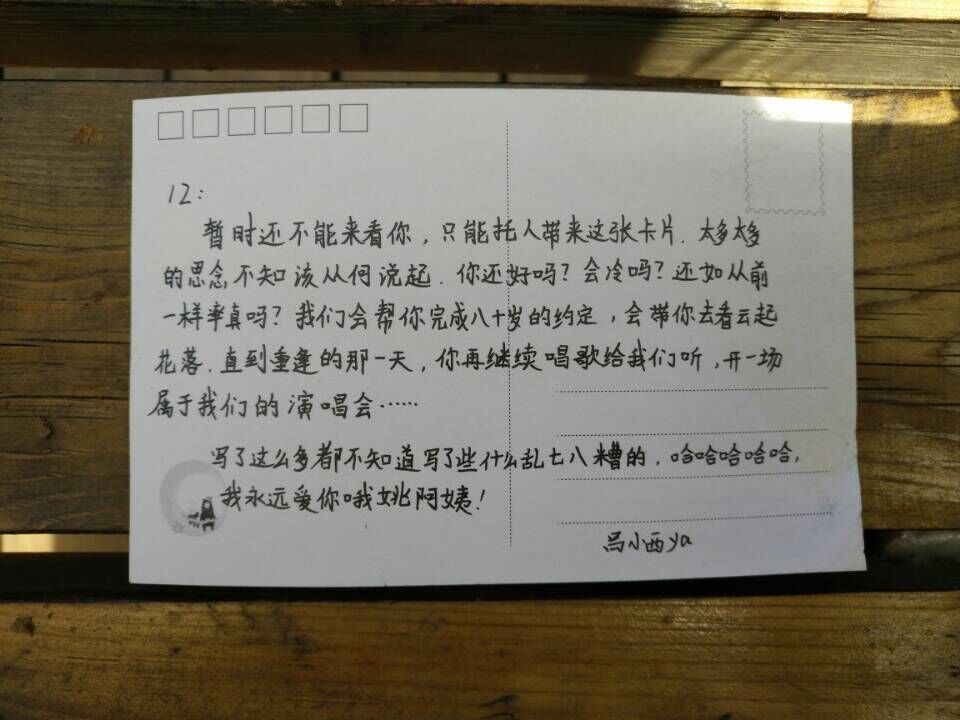 12:
暂时还不能来看你，只能托人带来这张卡片．太多太多
的思念，不知该从何说起．你还好吗？会冷吗？还如从前
一样率真吗？我们会帮你完成八十岁的约定，会带你去看云起
花落．直到重逢的那一天，你再继续唱歌给我们听，开一场
属于我们的演唱会……
写了这么多都不知道写了些什么乱七八糟的．哈哈哈哈哈，
我永远爱你哦姚阿姨！
吕小西ya